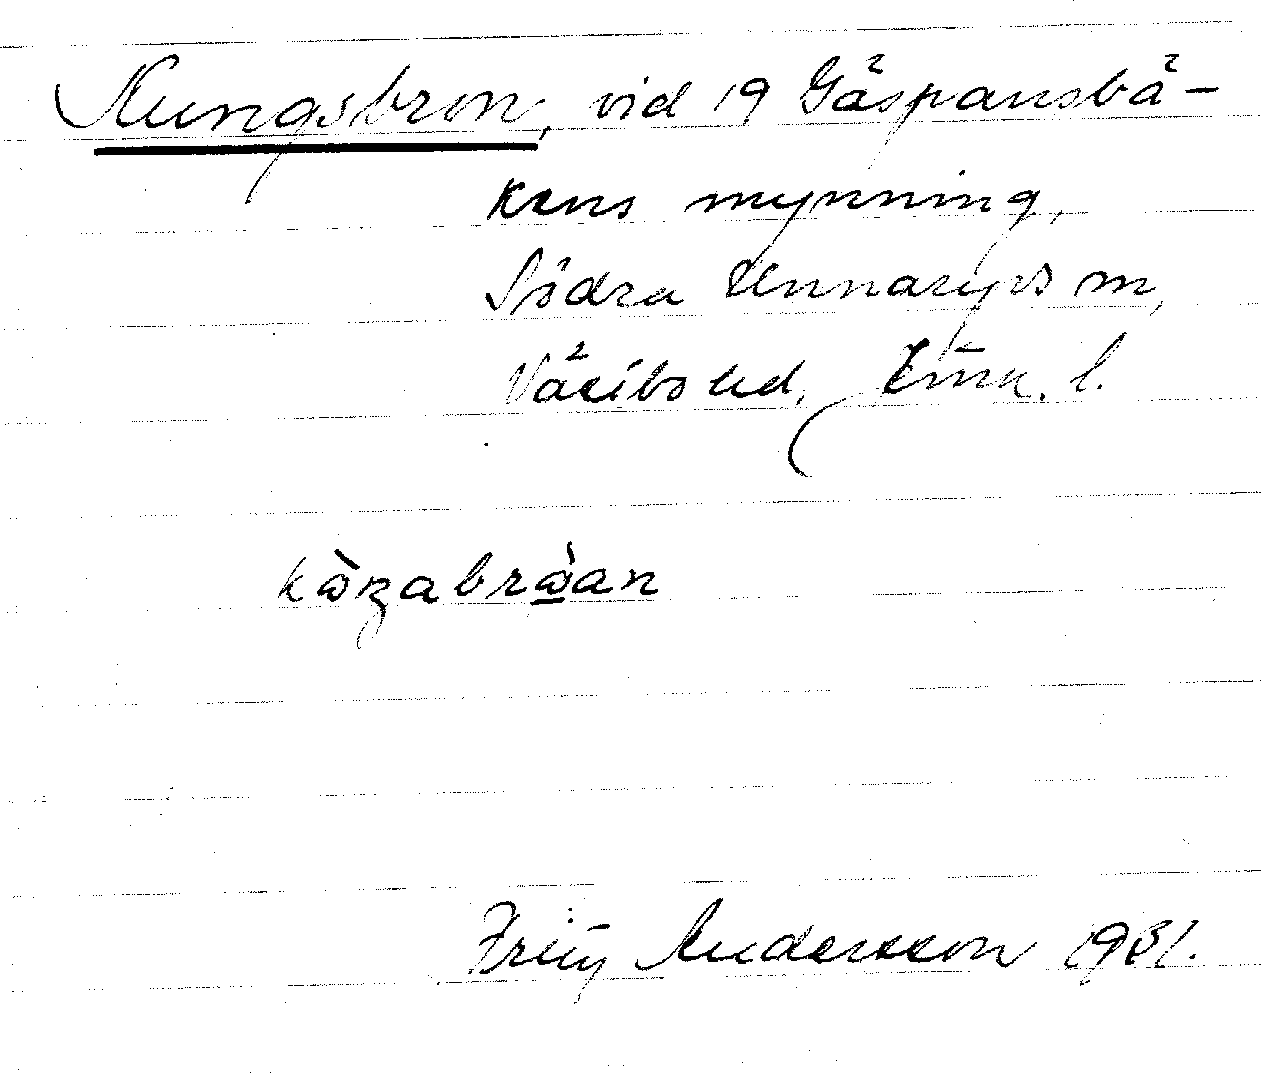 Kungsbron, vid 19 Gäspansbä-
kens mynning,
Södra Unnaryds sn,
Västbo hd, Jönk. l.
Andersson 1931.